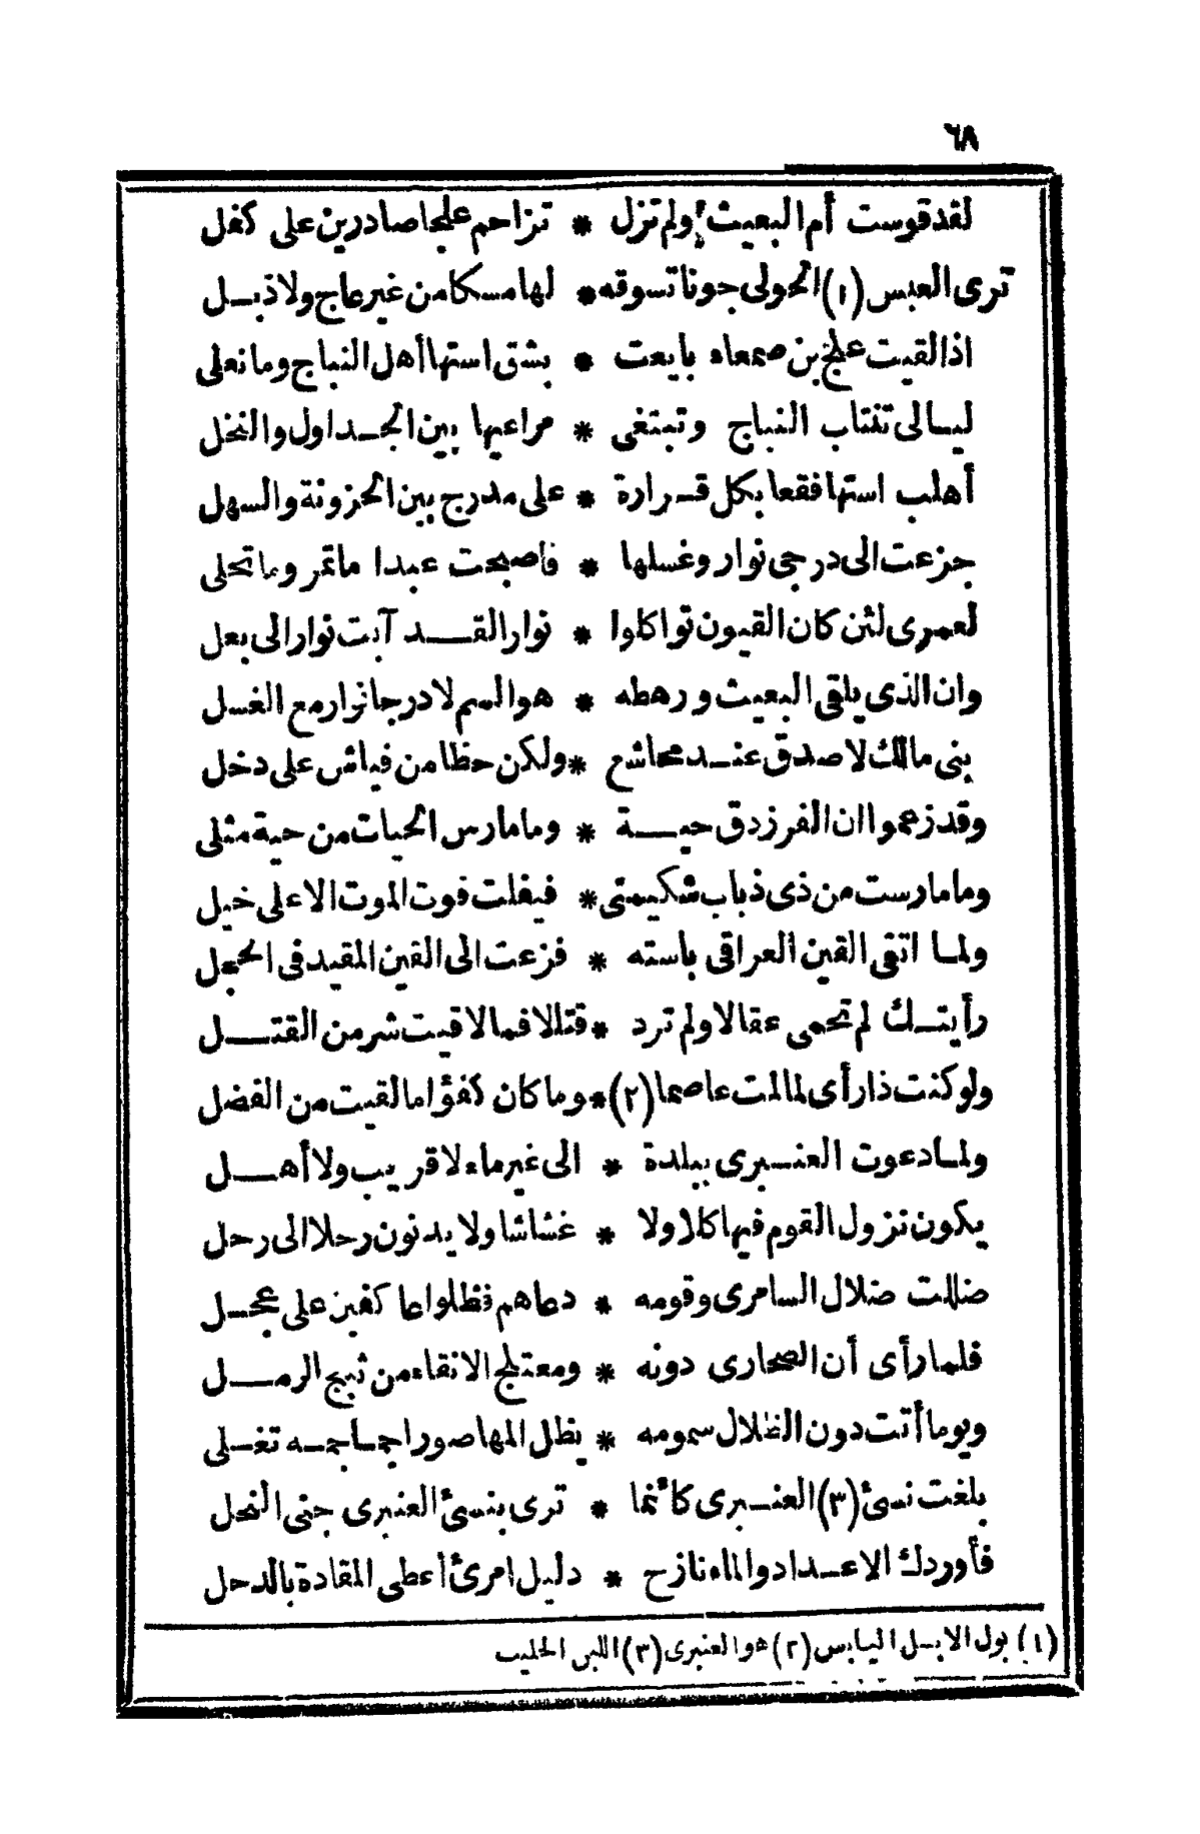 ٦٨
لقد قوست أم البعيث ولم تزل * تزاحم علجا صادرين على كفل
ترى العبس (١) الحولى جونا تسوقه * لها مسكا من غير عاج ولا ذبـل
اذا لقيت علج بن صمعاء بايعت * بشق استها أهل النباج وما نعلى
ليـالى تنتاب النباج وتبتغى * مراعيها بين الجـداول والنخل
أهلب استها فقعا بكل قـرارة * على مدرج بين الحزونة والسهل
جزعت الى درجى نوار وغسلها * فاصبحت عبدا ماتمر وما تحلى
لعمرى لئن كان القيون تواكلوا * نوار القـد آبت نوار الى بعل
وان الذى يلقى البعيث ورهطه * هو السم لا درجا نوار مع الغسل
بنى مالك لا صدق عنـد مجاشع * ولكن حظا من فياش على دخل
وقد زعموا ان الفرزدق حيـة * وما مارس الحيات من حية مثلى
وما مارست من ذى ذباب شكيمتى * فيفلت فوت الموت الا على خبل
ولمـا اتقى القين العراقى باستـه * فزعت الى القين المقيد فى الحجل
رأيتـك لم تحمى عقالا ولم ترد * قتالا فما لاقيت شر من القتـل
ولو كنت ذا رأى لما لمت عاصما (٢) * وما كان كفؤا ما لقيت من الفضل
ولمـا دعوت العنـبرى ببلدة * الى غير ماء لا قريب ولا أهـل
يكون نزول القوم فيها كلا ولا * غشاشا ولا يدنون رحلا الى رحل
ضللت ضلال السامرى وقومه * دعاهم فظلوا عاكفين على عجـل
فلما رأى أن الصحارى دونه * ومعتلج الانقاء من ثبج الرمـل
ويوما أتت دون الظلال سمومه * يظل المها صورا جمـاجمـه تغـلى
بلغت نسئ (٣) العنـبرى كأنما * ترى بنسئ العنبرى جنى النحل
فأوردك الاعـداد والماء نازح * دليل امرئ أعطى المقادة بالدحل
(١) بول الابـل اليابس (٢) هو العنبرى (٣) اللبن الحليب